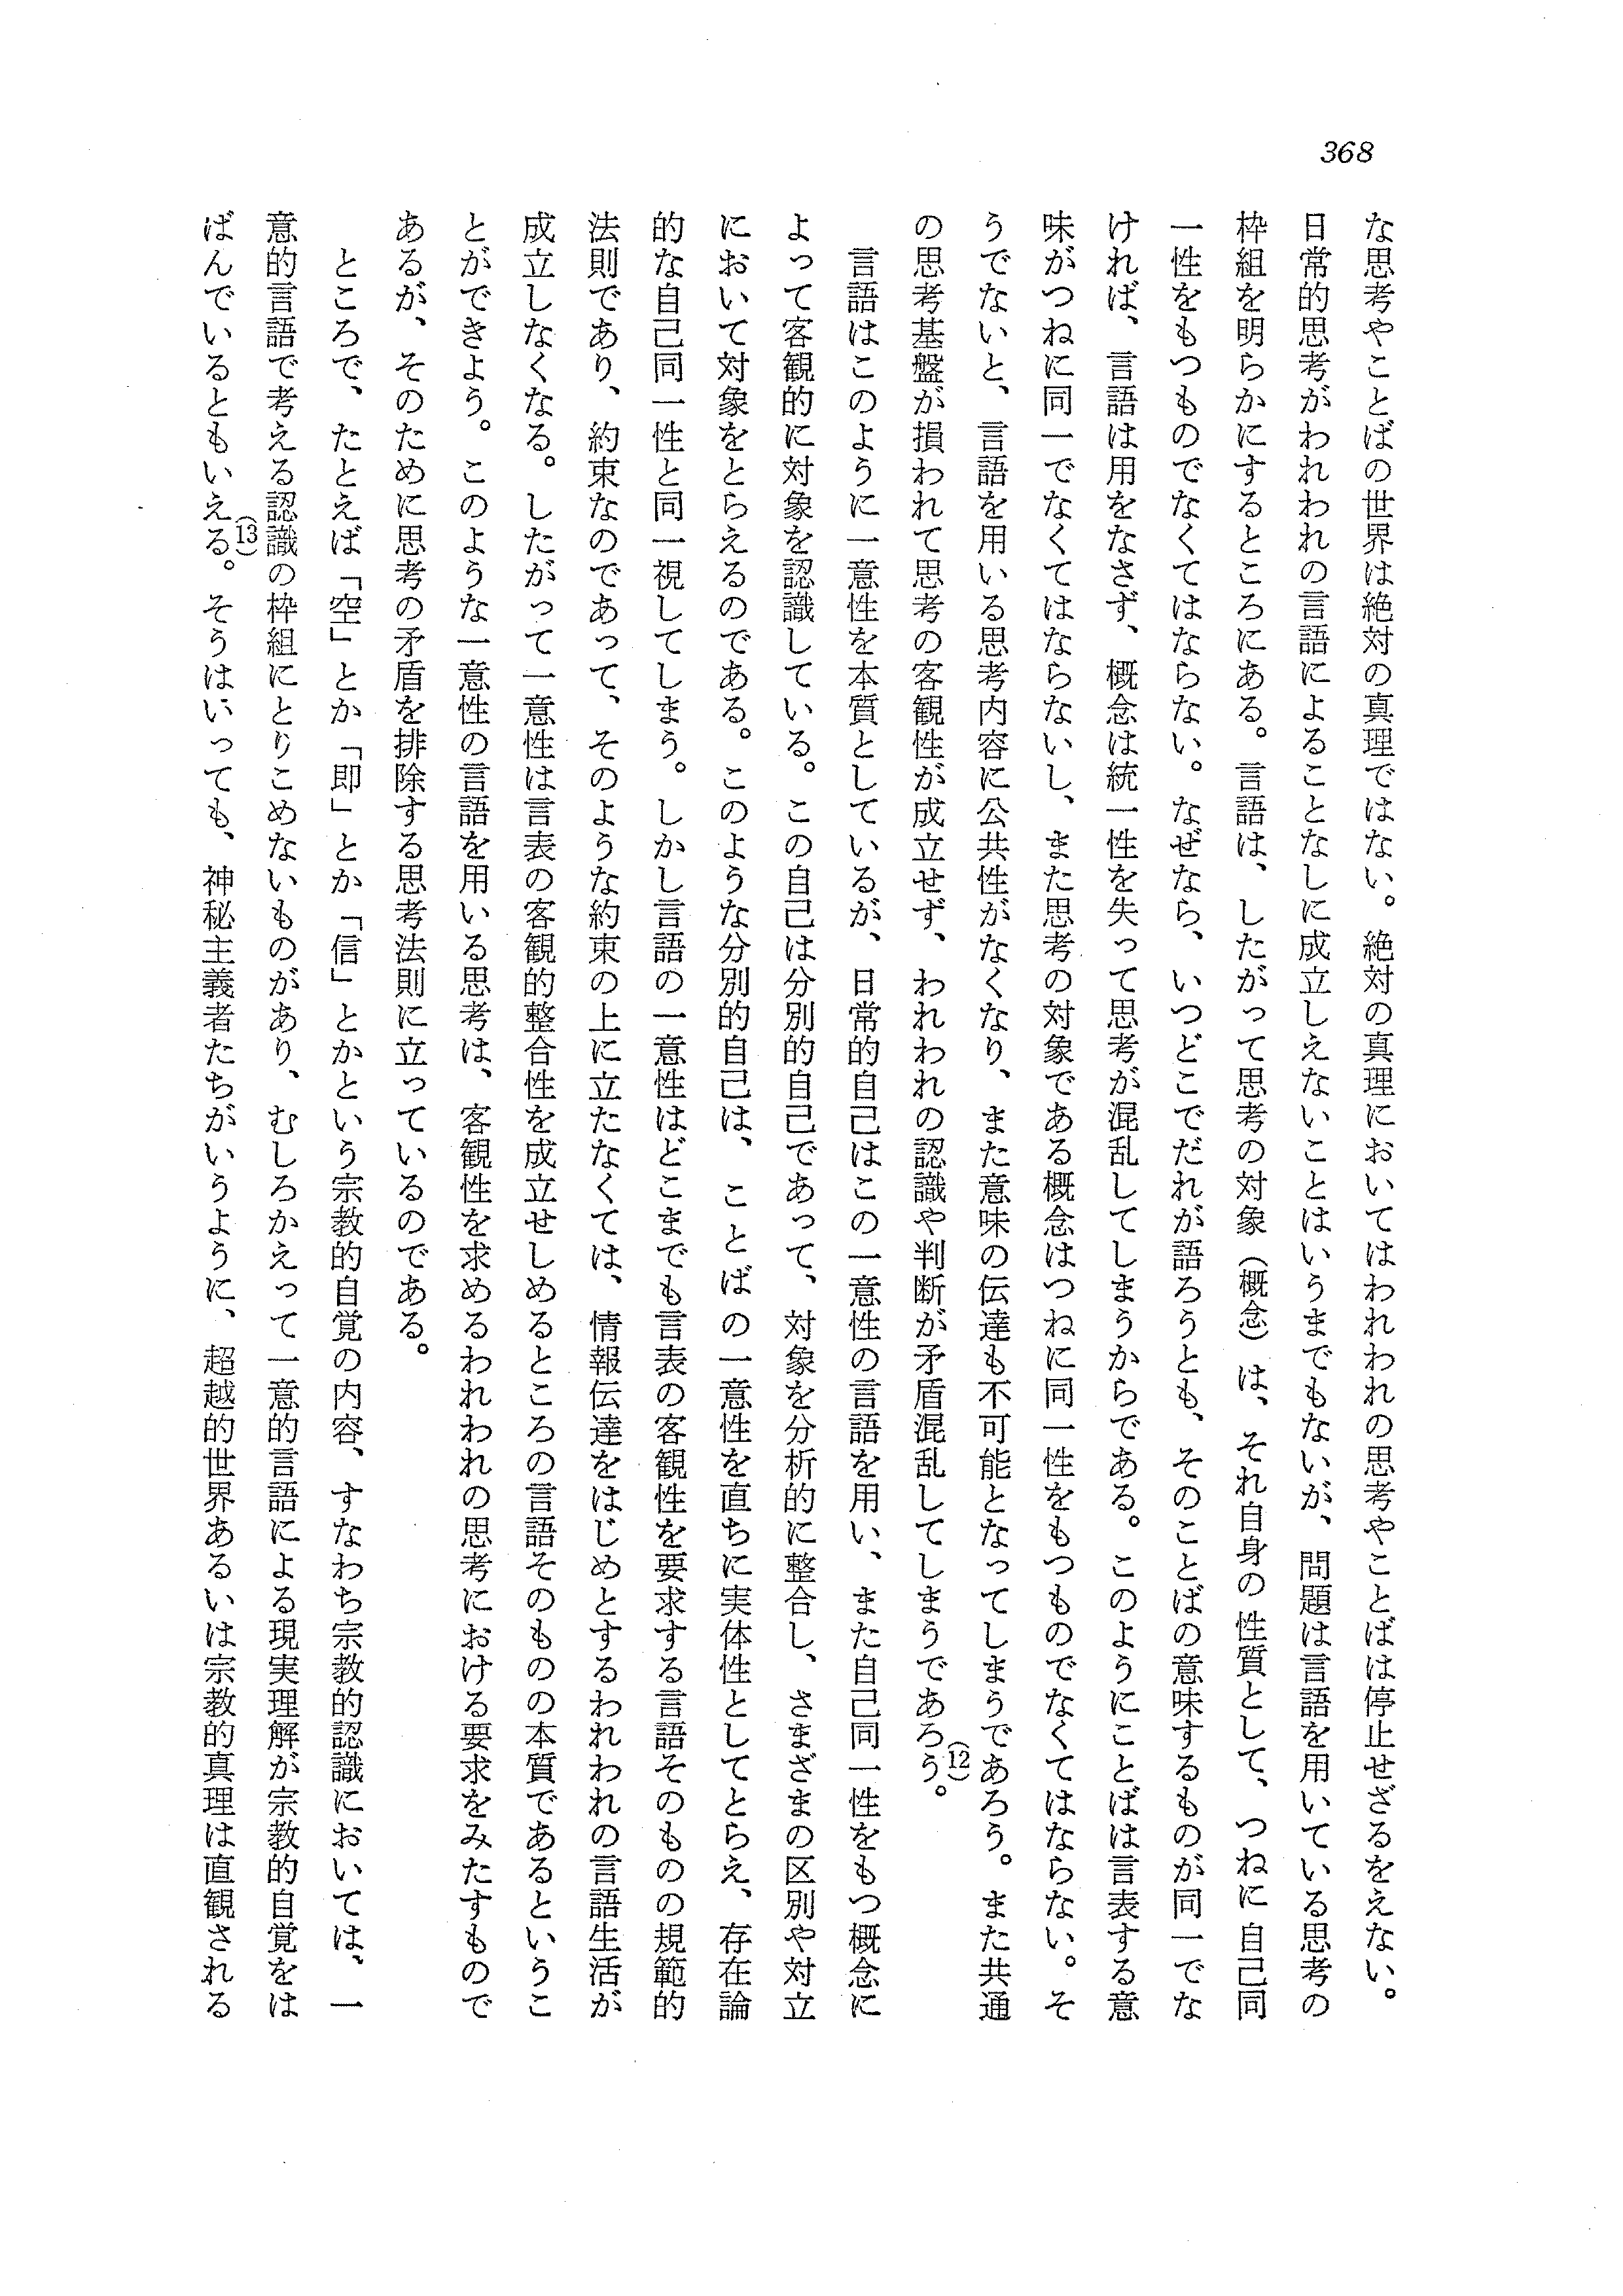 368
な思考やことばの世界は絶対の真理ではない。絶対の真理においてはわれわれの思考やことばは停止せざるをえない。
日常的思考がわれわれの言語によることなしに成立しえないことはいうまでもないが、問題は言語を用いている思考の
枠組を明らかにするところにある。言語は、したがって思考の対象（概念）は、それ自身の性質として、つねに自己同
一性をもつものでなくてはならない。なぜなら、いつどこでだれが語ろうとも、そのことばの意味するものが同一でな
ければ、言語は用をなさず、概念は統一性を失って思考が混乱してしまうからである。このようにことばは言表する意
味がつねに同一でなくてはならないし、また思考の対象である概念はつねに同一性をもつものでなくてはならない。そ
うでないと、言語を用いる思考内容に公共性がなくなり、また意味の伝達も不可能となってしまうであろう。また共通
の思考基盤が損われて思考の客観性が成立せず、われわれの認識や判断が矛盾混乱してしまうであろう。(12)
言語はこのように一意性を本質としているが、日常的自己はこの一意性の言語を用い、また自己同一性をもつ概念に
よって客観的に対象を認識している。この自己は分別的自己であって、対象を分析的に整合し、さまざまの区別や対立
において対象をとらえるのである。このような分別的自己は、ことばの一意性を直ちに実体性としてとらえ、存在論
的な自己同一性と同一視してしまう。しかし言語の一意性はどこまでも言表の客観性を要求する言語そのものの規範的
法則であり、約束なのであって、そのような約束の上に立たなくては、情報伝達をはじめとするわれわれの言語生活が
成立しなくなる。したがって一意性は言表の客観的整合性を成立せしめるところの言語そのものの本質であるというこ
とができよう。このような一意性の言語を用いる思考は、客観性を求めるわれわれの思考における要求をみたすもので
あるが、そのために思考の矛盾を排除する思考法則に立っているのである。
ところで、たとえば「空」とか「即」とか「信」とかという宗教的自覚の内容、すなわち宗教的認識においては、一
意的言語で考える認識の枠組にとりこめないものがあり、むしろかえって一意的言語による現実理解が宗教的自覚をは
ばんでいるともいえる。(13)そうはいっても、神秘主義者たちがいうように、超越的世界あるいは宗教的真理は直観される